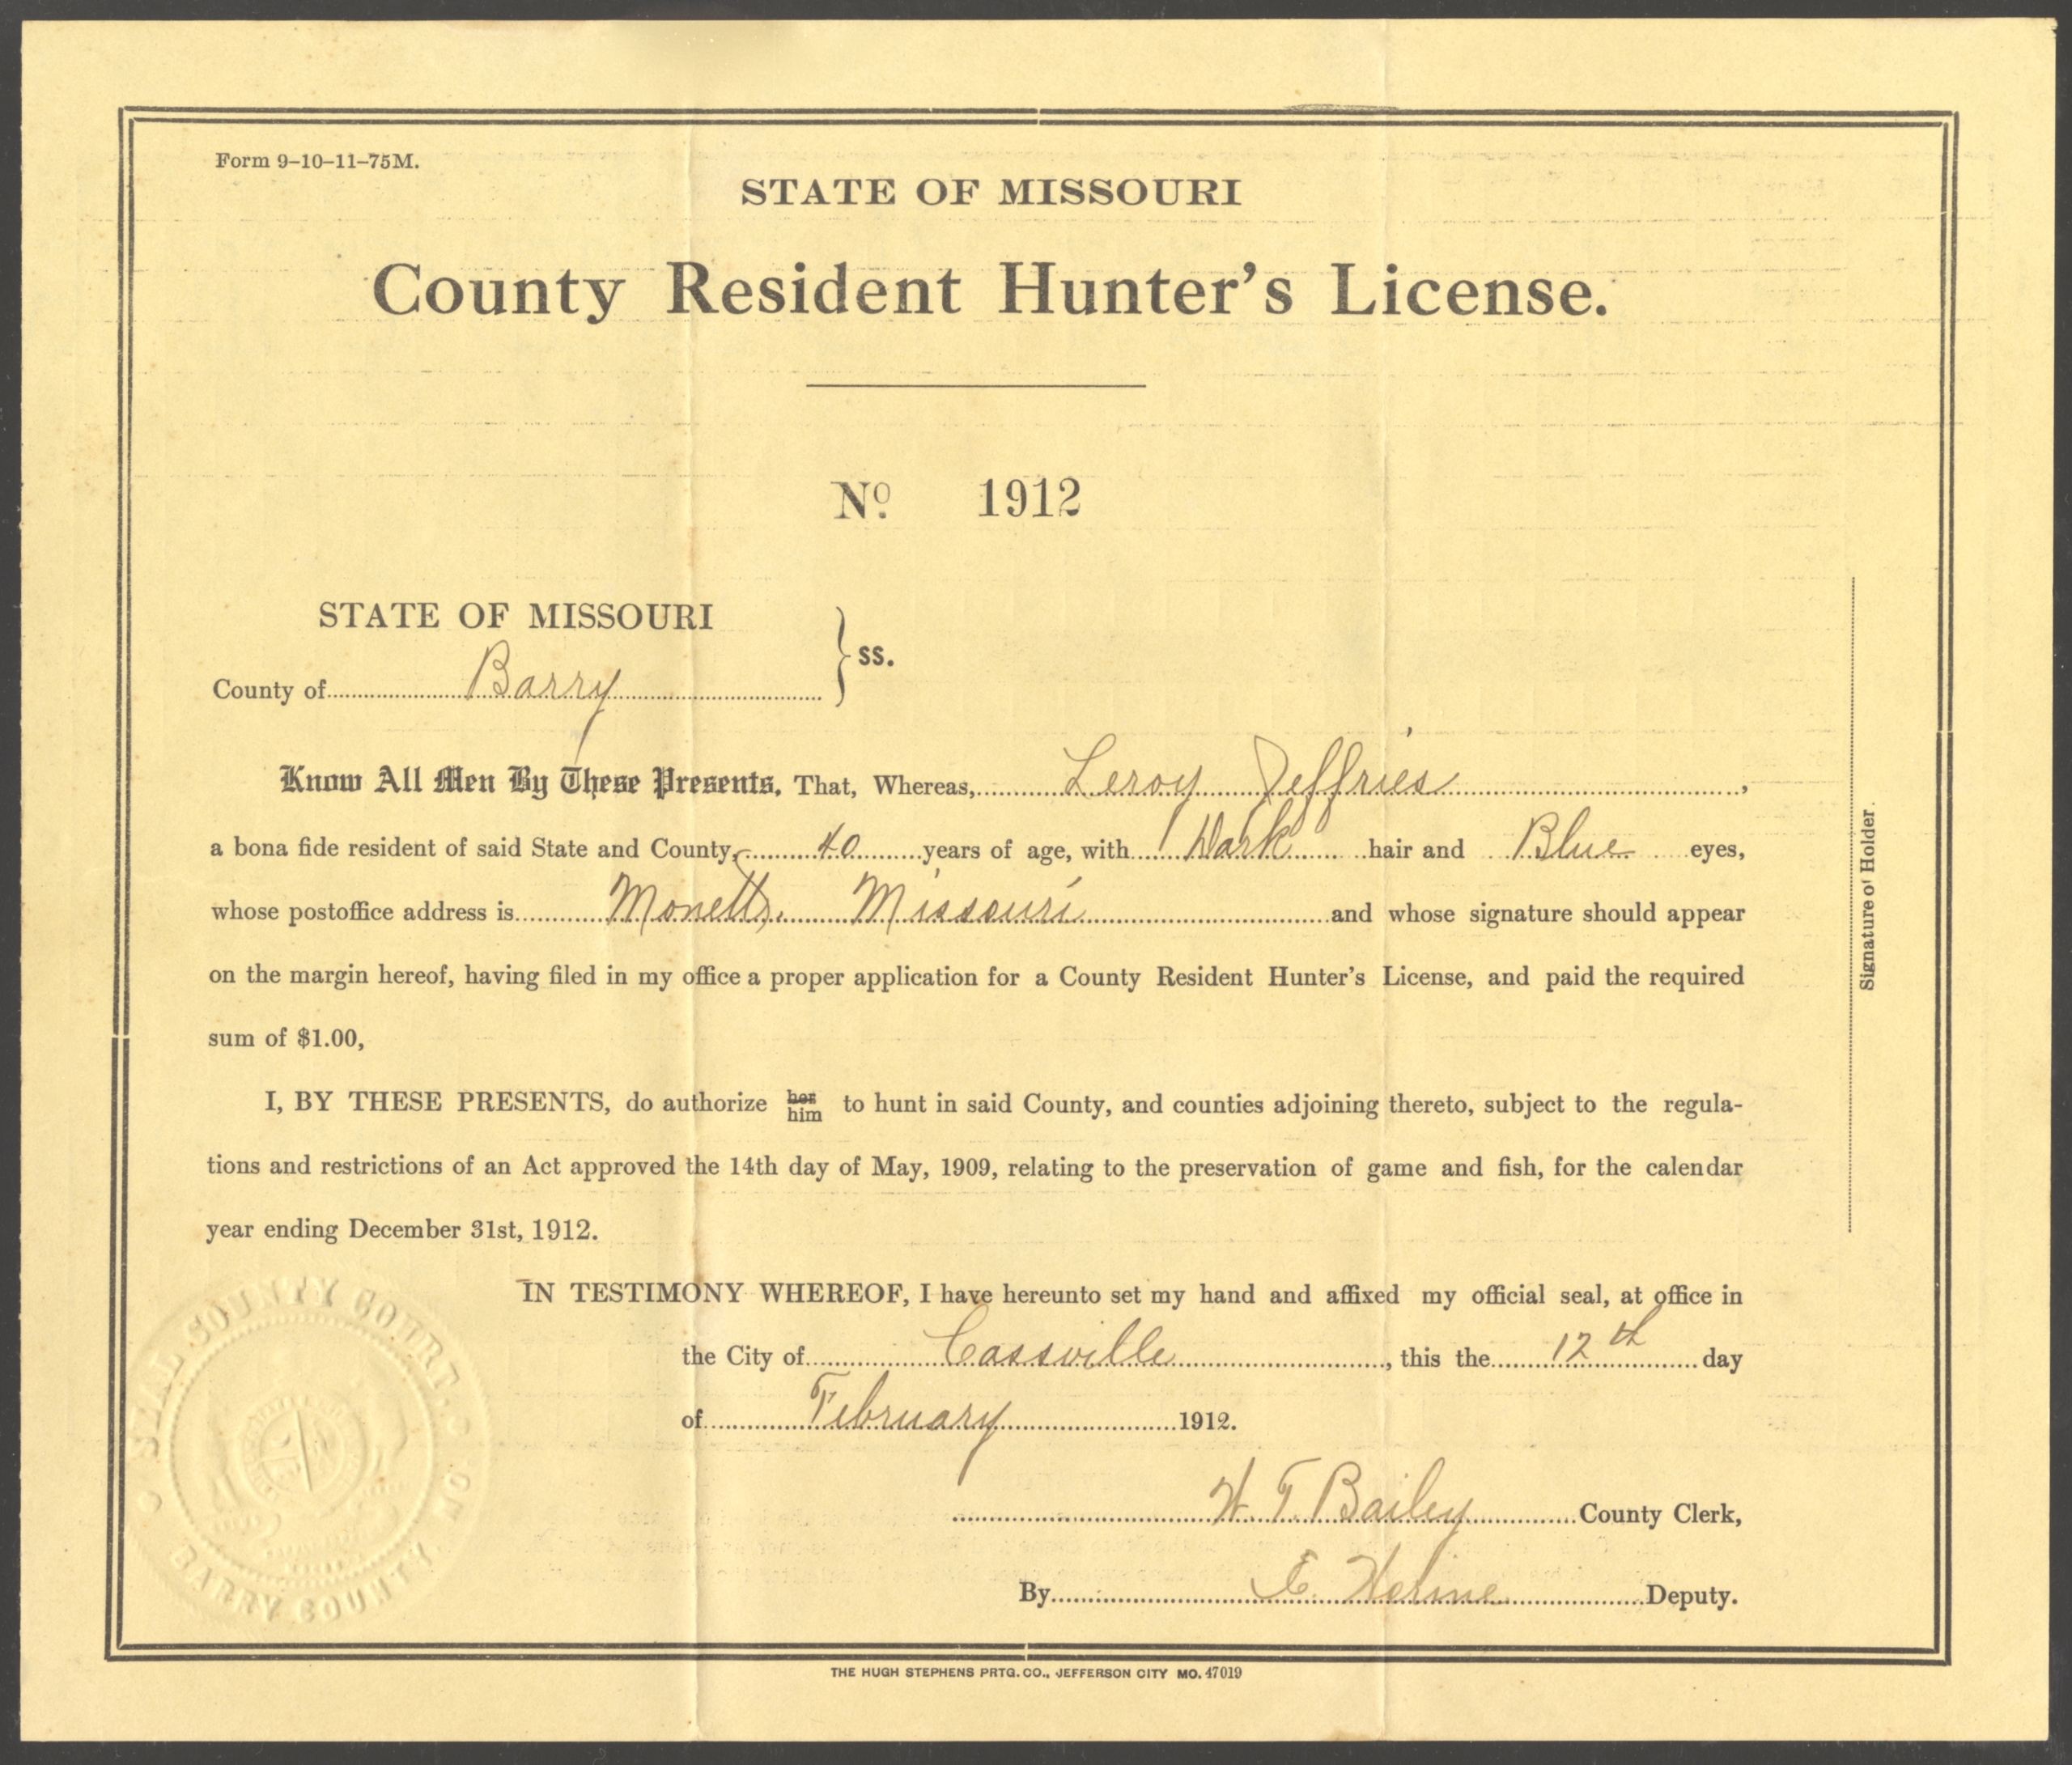 Form 9-10-11-75M.
STATE OF MISSOURI
County Resident Hunter's License.
No. 1912
STATE OF MISSOURI
County of Barry } ss.
Know All Men By These Presents, That, Whereas, Leroy Jeffries,
a bona fide resident of said State and County, 40 years of age, with Dark hair and Blue eyes,
whose postoffice address is Monett, Missouri and whose signature should appear
on the margin hereof, having filed in my office a proper application for a County Resident Hunter's License, and paid the required
sum of $1.00,
I, BY THESE PRESENTS, do authorize her him to hunt in said County, and counties adjoining thereto, subject to the regula-
tions and restrictions of an Act approved the 14th day of May, 1909, relating to the preservation of game and fish, for the calendar
year ending December 31st, 1912.
IN TESTIMONY WHEREOF, I have hereunto set my hand and affixed my official seal, at office in
the City of Cassville, this the 12th day
of February 1912.
W. T. Bailey County Clerk,
By E. Deputy.
Signature of Holder.
SEAL COUNTY COURT OF
BARRY COUNTY
THE HUGH STEPHENS PRTG. CO., JEFFERSON CITY MO. 47019